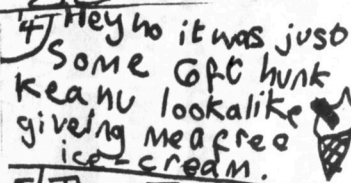 4) Hey ho it was just
some 6ft hunk
keanu lookalike
giveing me a free
ice-cream.